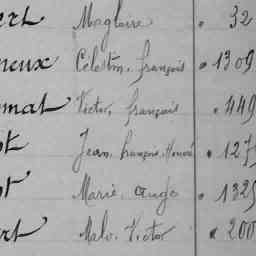 Magloire " 32
Celestin, françois " 1309
Victor, françois " 449
Jean, françois, Honoré " 127
Marie, ange " 1325
art Malo, Victor " 200